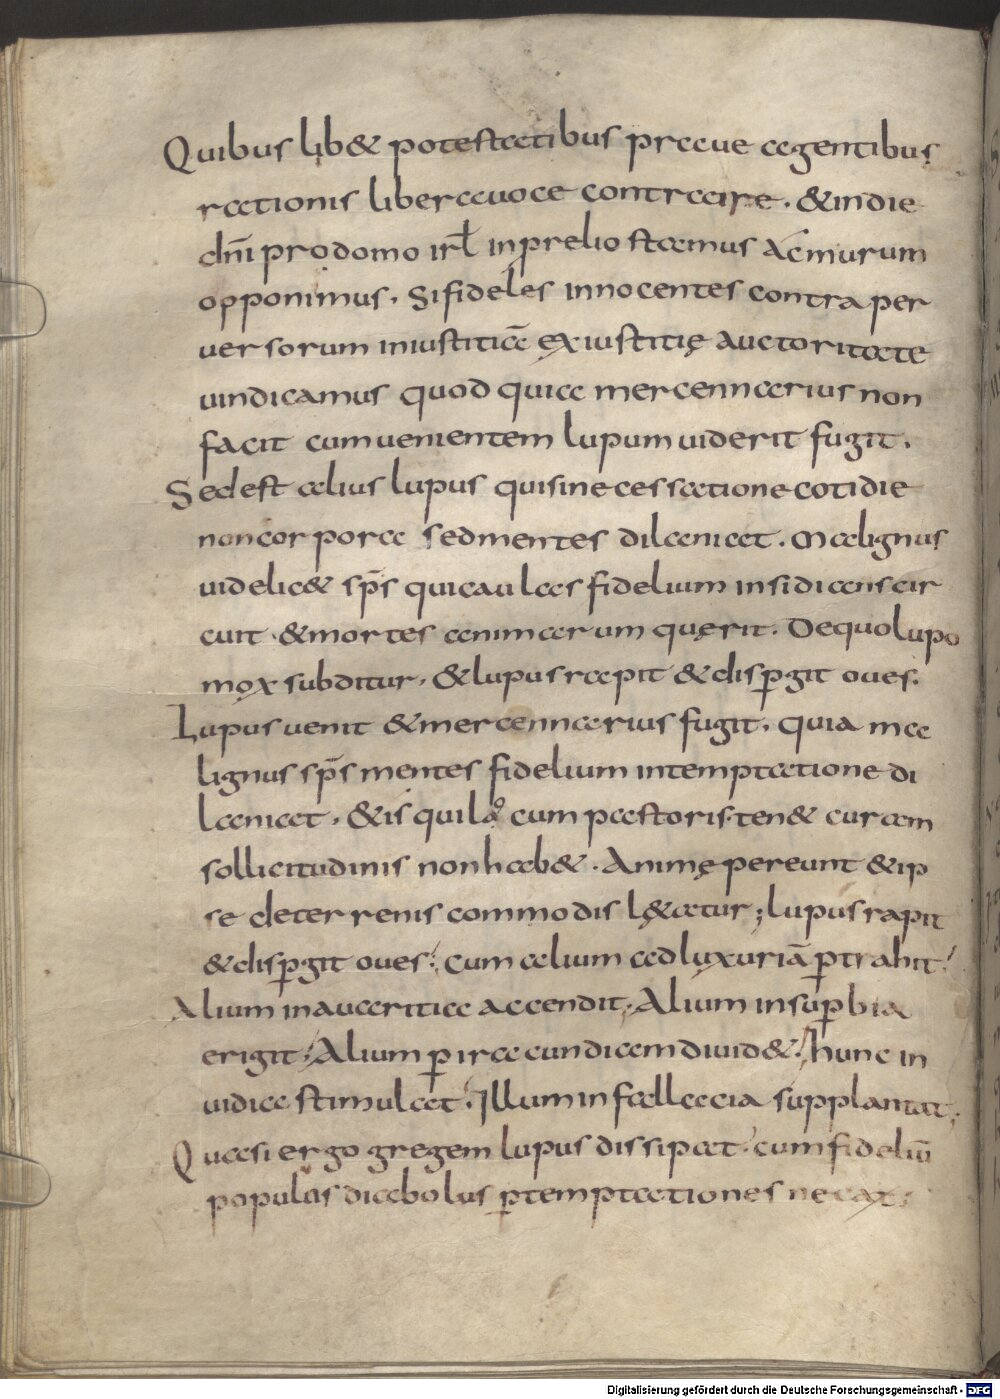 Quibus lib& potestatibus praue agentibus
rationis libera uoce contraire. & in die
dn̄i pro domo irl̄ in prelio stamus ac murum
opponimus. Si fideles innocentes contra per
uersorum iniustitiā ex iustitię auctoritate
uindicamus quod quia mercennarius non
facit cum uenientem lupum uiderit fugit.
Sed est alius lupus qui sine cessatione cotidie
non corpora sed mentes dilaniat. Malignus
uidelic& sp̄s qui caulas fidelium insidians cir
cuit. & mortes animarum quęrit. De quo lupo
mox subditur. & lupus rapit & disꝑgit oues.
Lupus uenit & mercennarius fugit. quia ma
lignus sp̄s mentes fidelium in temptatione di
laniat. & is qui cum pastoris ten& curam
sollicitudinis non hab&. Animę pereunt & ip
se de terrenis commodis l&atur; lupus rapit
& disꝑgit oues. Cum alium ad luxuriā ꝑtrahit.
Alium in auaritia accendit. Alium in suꝑbia
erigit. Alium ꝑ iracundiam diuid&. hunc in
uidia stimulat. Illum in fallacia supplantat.
Quasi ergo gregem lupus dissipat. cum fideliū
populus diabolus ꝑ temptationes necat;
Digitalisierung gefördert durch die Deutsche Forschungsgemeinschaft - DFG